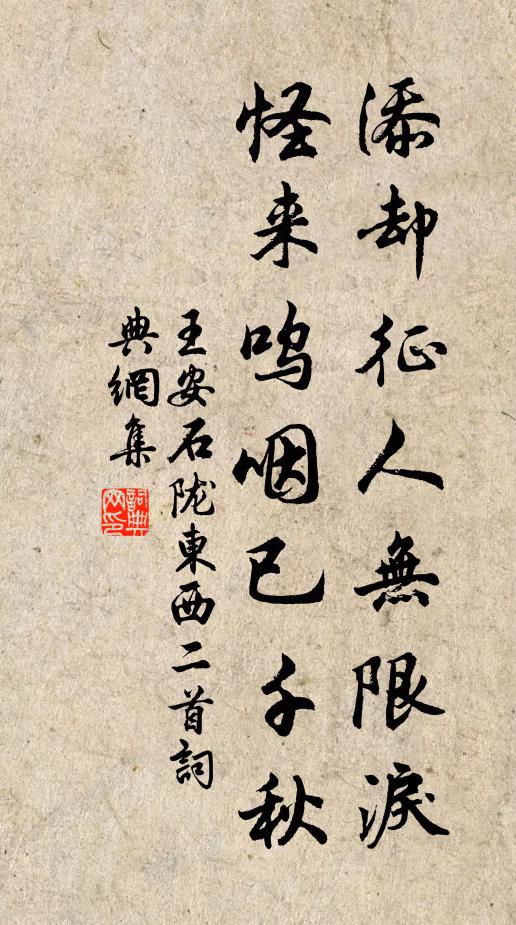 添却征人無限淚
怪来鸣咽已千秋
王安石陇東西二首詞
典網集
詞典
网印